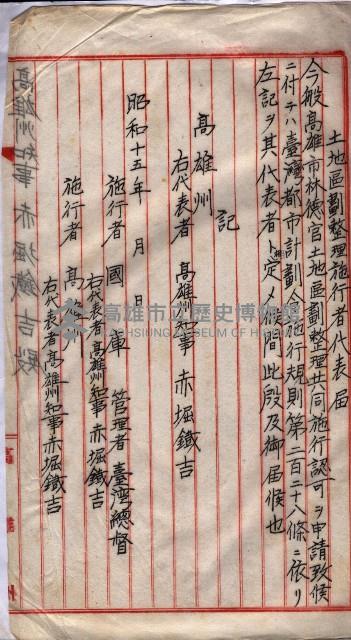 土地區劃整理施行者代表届
今般高雄市林德官土地區劃整理共同施行認可ヲ申請致候
ニ付テハ臺灣都市計劃令施行規則第二百二十八條ニ依リ
左記ヲ其代表者ト相定メ候間此段及御届候也
記
高雄州
右代表者 高雄州知事 赤堀鐵吉
昭和十五年 月 日
施行者 國庫 管理者 臺灣總督
右代表者 高雄州知事 赤堀鐵吉
施行者 高雄州
右代表者 高雄州知事 赤堀鐵吉
高雄州知事 赤堀鐵吉殿
高雄市立歷史博物館
KAOHSIUNG MUSEUM OF HISTORY